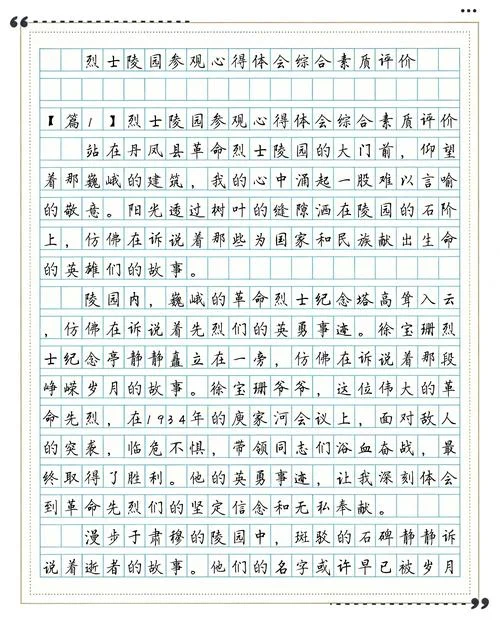 烈士陵园参观心得体会综合素质评价
【篇1】烈士陵园参观心得体会综合素质评价
站在丹凤县革命烈士陵园的大门前，仰望
着那巍峨的建筑，我的心中涌起一股难以言喻
的敬意。阳光透过树叶的缝隙洒在陵园的石阶
上，仿佛在诉说着那些为国家和民族献出生命
的英雄们的故事。
陵园内，巍峨的革命烈士纪念塔高耸入云
，仿佛在诉说着先烈们的英勇事迹。徐宝珊烈
士纪念亭静静矗立在一旁，仿佛在诉说着那段
峥嵘岁月的故事。徐宝珊爷爷，这位伟大的革
命先烈，在1934年的庾家河会议上，面对敌人
的突袭，临危不惧，带领同志们浴血奋战，最
终取得了胜利。他的英勇事迹，让我深刻体会
到革命先烈们的坚定信念和无私奉献。
漫步于肃穆的陵园中，斑驳的石碑静静诉
说着逝者的故事。他们的名字或许早已被岁月